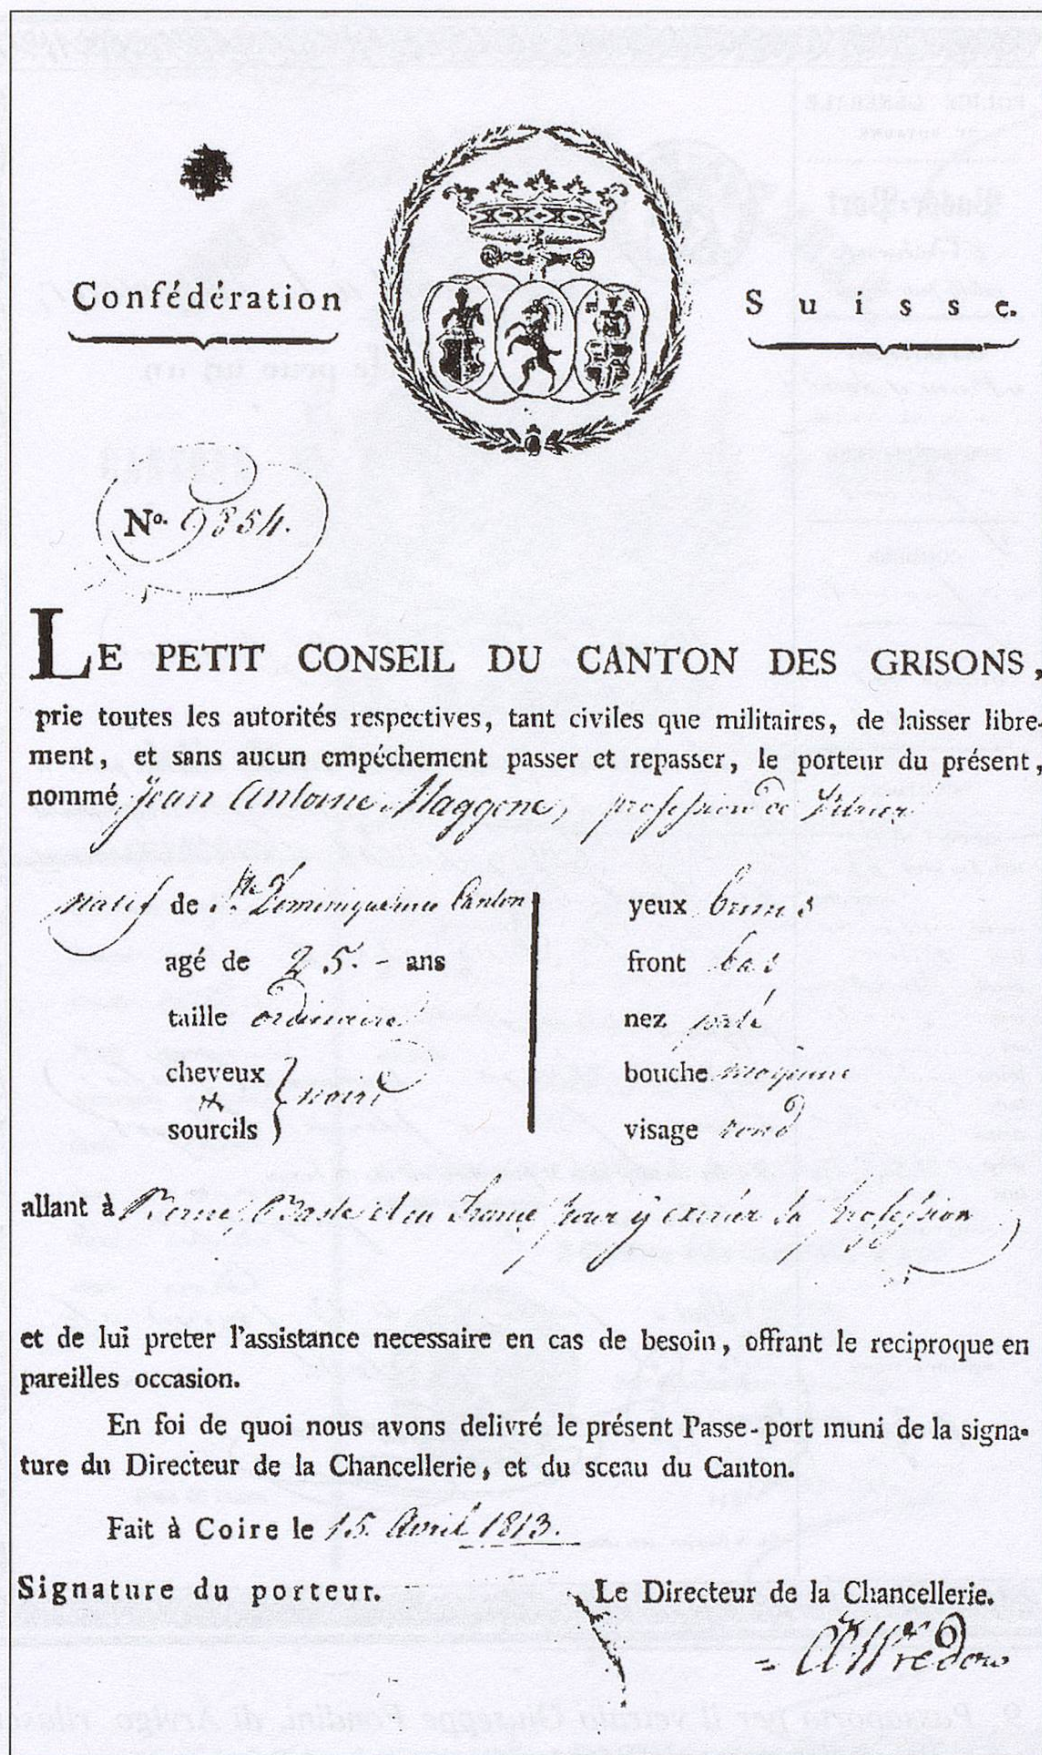 Confédération Suisse.
No. 9854.
LE PETIT CONSEIL DU CANTON DES GRISONS,
prie toutes les autorités respectives, tant civiles que militaires, de laisser libre-
ment, et sans aucun empéchement passer et repasser, le porteur du présent,
nommé Jean Antoine Maggene, profession de Vitrier
natif de Ste. Dominique mie Canton
agé de 25.- ans
taille ordinaire
cheveux
et noirs
sourcils
yeux bruns
front bas
nez
bouche moyenne
visage rond
allant à Berne, Basle et en France pour y exercer sa profession
et de lui preter l'assistance necessaire en cas de besoin, offrant le reciproque en
pareilles occasion.
En foi de quoi nous avons delivré le présent Passe-port muni de la signa-
ture du Directeur de la Chancellerie, et du sceau du Canton.
Fait à Coire le 15. Avril 1813.
Signature du porteur. Le Directeur de la Chancellerie.